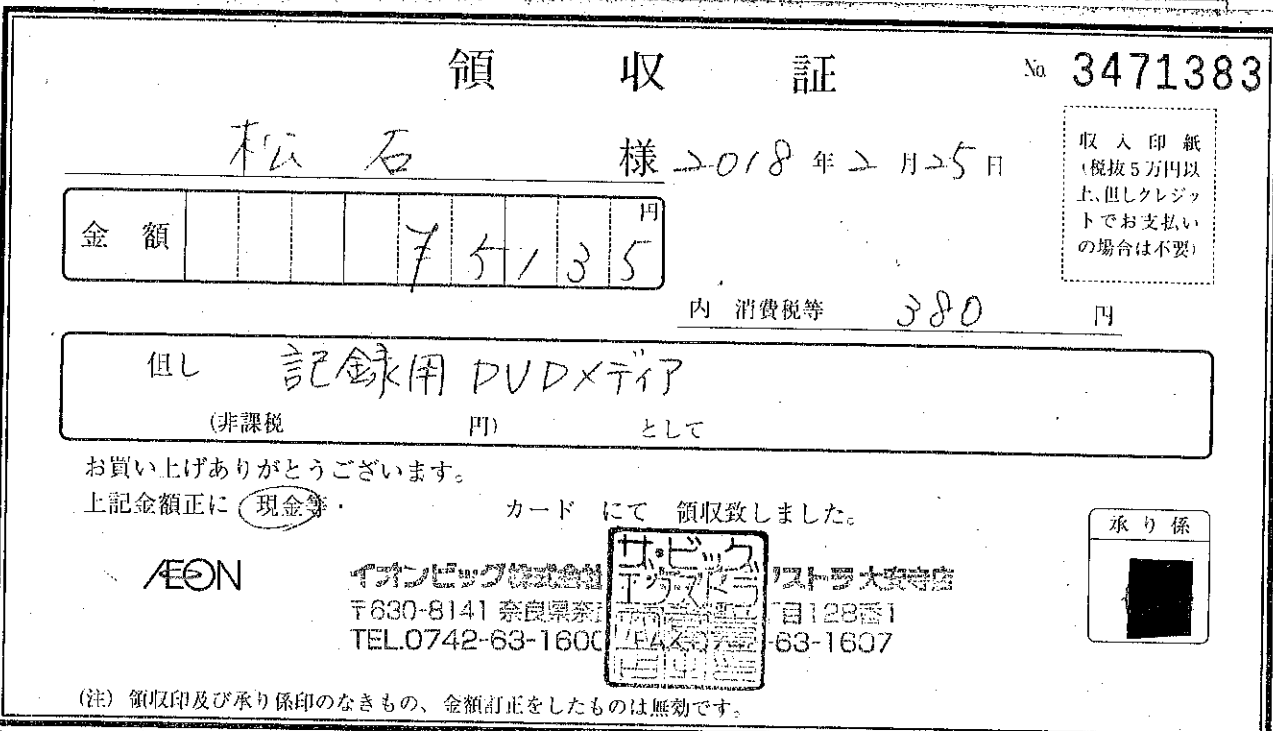 領収証 № 3471383
松石 様 2018年2月25日
収入印紙
(税抜5万円以
上、但しクレジッ
トでお支払い
の場合は不要)
金額 ¥5135円
内 消費税等 380 円
但し 記録用DVDメディア
(非課税 円) として
お買い上げありがとうございます。
上記金額正に 現金等・ カード にて 領収致しました。
承り係
ÆON
イオンビッグ株式会社 ザ・ビッグ エクストラ 大安寺店
〒630-8141 奈良県奈 目128番1
TEL.0742-63-1600 FAX.0742-63-1607
(注) 領収印及び承り係印のなきもの、金額訂正をしたものは無効です。